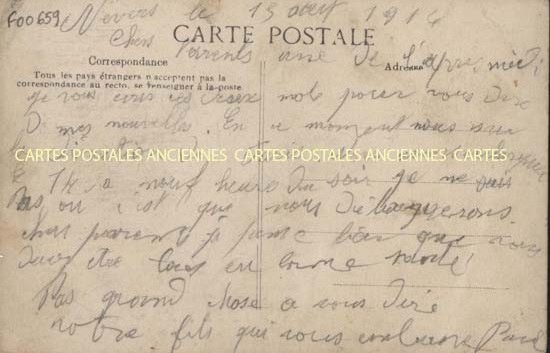 F00659
Nevers le 15 août 1914
CARTE POSTALE
Chers Parents
de l'après midi
Correspondance
Adresse
Tous les pays étrangers n'acceptent pas la
correspondance au recto, se renseigner à la poste
je vous ces deux mots pour vous dire
De mes nouvelles. En ce moment nous
CARTES POSTALES ANCIENNES CARTES POSTALES ANCIENNES CARTES
le 14 a neuf heure Du soir je ne
pas ou c'est que nous Débarquerons.
chers parents je pense bien que vous
tous en bonne santé
Pas grand chose a vous Dire
votre fils qui vous Paul